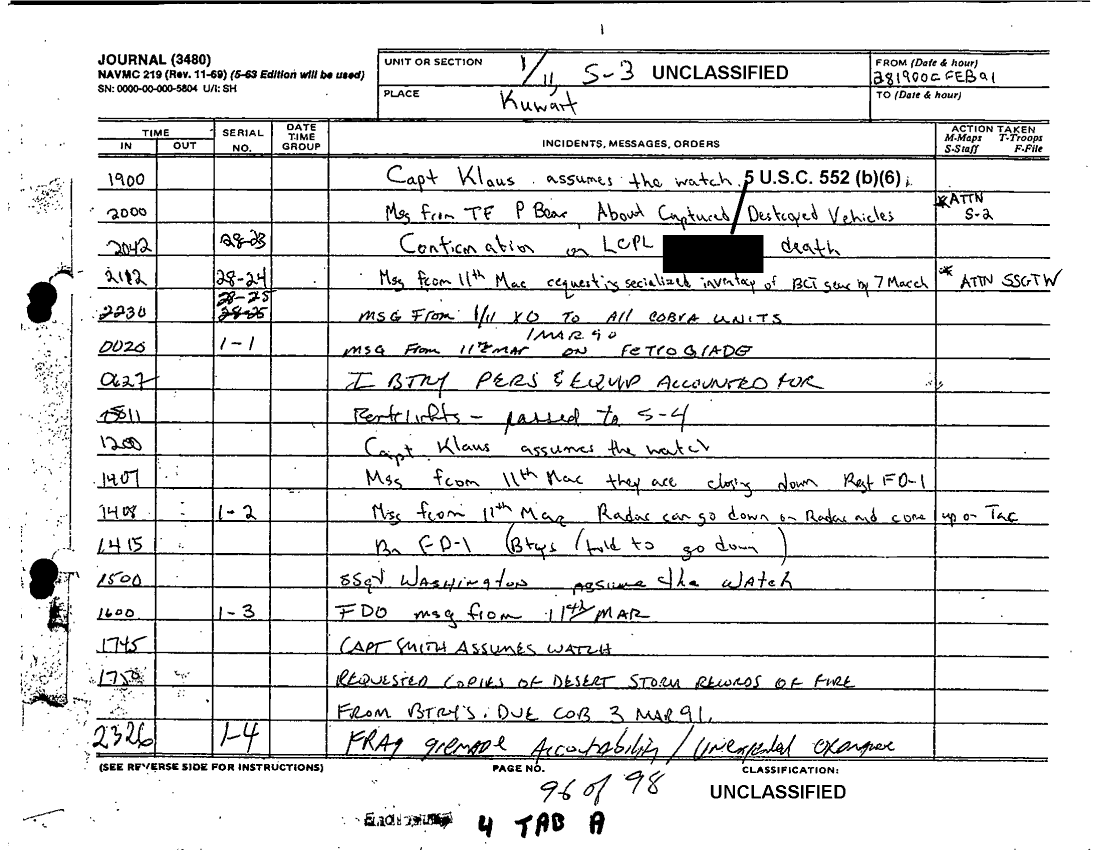 1
JOURNAL (3480)
NAVMC 219 (Rev. 11-69) (5-63 Edition will be used)
SN: 0000-00-000-5804 U/I: SH
UNIT OR SECTION 1/11, S-3 UNCLASSIFIED
FROM (Date & hour)
281900C FEB91
PLACE Kuwait
TO (Date & hour)
TIME
IN OUT
SERIAL NO.
DATE TIME GROUP
INCIDENTS, MESSAGES, ORDERS
ACTION TAKEN
M-Maps T-Troops
S-Staff F-File
1900 Capt Klaus assumes the watch. 5 U.S.C. 552 (b)(6)
2000 Msg from TF P Bear, About Captured Destroyed Vehicles *ATTN S-2
2042 28-23 Confirmation on LCPL death
2112 28-24 Msg from 11th Mar requesting serialized inventory of BCT gear by 7 March * ATTN SSGTW
28-25
2230 28-25 MSG From 1/11 XO TO All COBRA UNITS
1 MAR 90
0020 1-1 MSG From 11th MAR ON RETROGRADE
0627 I BTRY PERS & EQUIP ACCOUNTED FOR
0811 - passed to S-4
1200 Capt Klaus assumes the watch
1407 Msg from 11th Mar they are closing down Regt FD-1
1408 1-2 Msg from 11th Mar Radar can go down on Radar and come up on Tac
1415 Bn FD-1 (Btrys (told to go down)
1500 SSgt WASHington assume the WAtch
1600 1-3 FDO msg from 11th MAR
1745 CAPT SMITH ASSUMES WATCH
1750 REQUESTED COPIES OF DESERT STORM RECORDS OF FIRE
FROM BTRY'S. DUE COB 3 MAR 91.
2326 1-4 FRAG grenade Accountability / Unexpended
(SEE REVERSE SIDE FOR INSTRUCTIONS)
PAGE NO.
96 of 98
CLASSIFICATION:
UNCLASSIFIED
4 TAB A